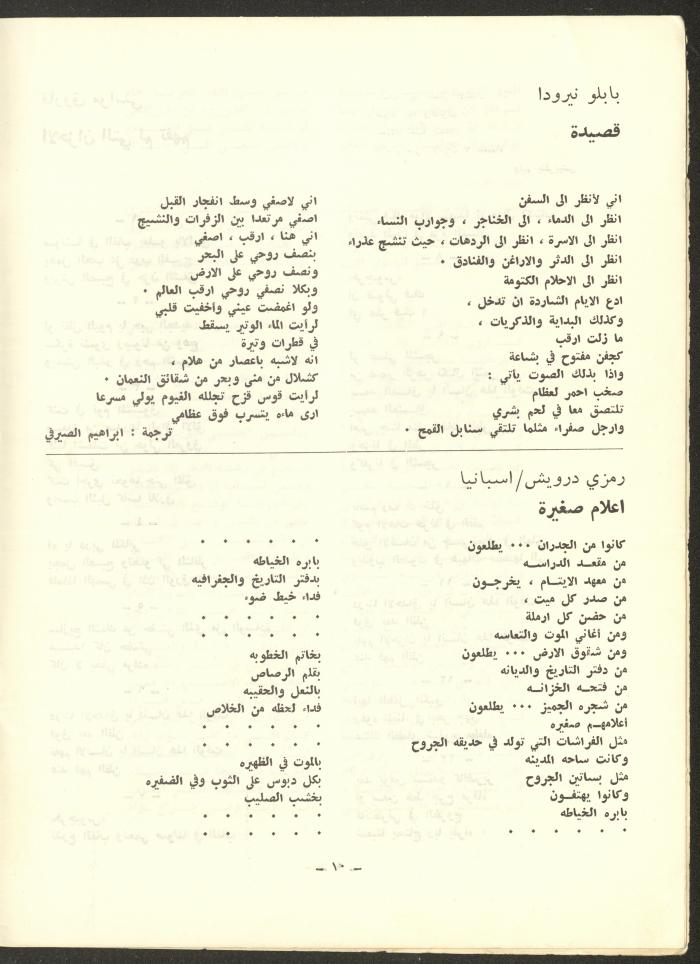 بابلو نيرودا
قصيدة
اني لأنظر الى السفن
انظر الى الدماء ، الى الخناجر ، وجوارب النساء
انظر الى الاسرة ، انظر الى الردهات ، حيث تنشج عذراء
انظر الى الدثر والاراغن والفنادق .
انظر الى الاحلام الكتومة
ادع الايام الشاردة ان تدخل ،
وكذلك البداية والذكريات ،
ما زلت ارقب
كجفن مفتوح في بشاعة
واذا بذلك الصوت يأتي :
صخب احمر لعظام
تلتصق معا في لحم بشري
وارجل صفراء مثلما تلتقي سنابل القمح .
اني لاصغي وسط انفجار القبل
اصغي مرتعدا بين الزفرات والنشيج
اني هنا ، ارقب ، اصغي
بنصف روحي على البحر
ونصف روحي على الارض
وبكلا نصفي روحي ارقب العالم .
ولو اغمضت عيني وأخفيت قلبي
لرأيت الماء الوتير يسقط
في قطرات وتيرة
انه لاشبه باعصار من هلام ،
كشلال من منى وبحر من شقائق النعمان .
لرأيت قوس قزح تجلله الغيوم يولي مسرعا
ارى ماءه يتسرب فوق عظامي
ترجمة : ابراهيم الصيرفي
رمزي درويش/اسبانيا
اعلام صغيرة
كانوا من الجدران ... يطلعون
من مقعد الدراسه
من معهد الايتام ، يخرجون
من صدر كل ميت ،
من حضن كل ارملة
ومن أغاني الموت والتعاسه
ومن شقوق الارض ... يطلعون
من دفتر التاريخ والديانه
من فتحه الخزانه
من شجره الجميز ... يطلعون
أعلامهم صغيره
مثل الفراشات التي تولد في حديقه الجروح
وكانت ساحه المدينه
مثل بساتين الجروح
وكانوا يهتفون
بابره الخياطه
. . . . . .
. . . . . .
بابره الخياطه
بدفتر التاريخ والجغرافيه
فداء خيط ضوء
. . . . . .
. . . . . .
بخاتم الخطوبه
بقلم الرصاص
بالنعل والحقيبه
فداء لحظه من الخلاص
. . . . . .
. . . . . .
بالموت في الظهيره
بكل دبوس على الثوب وفي الضفيره
بخشب الصليب
. . . . . .
. . . . . .
- ١٠ -